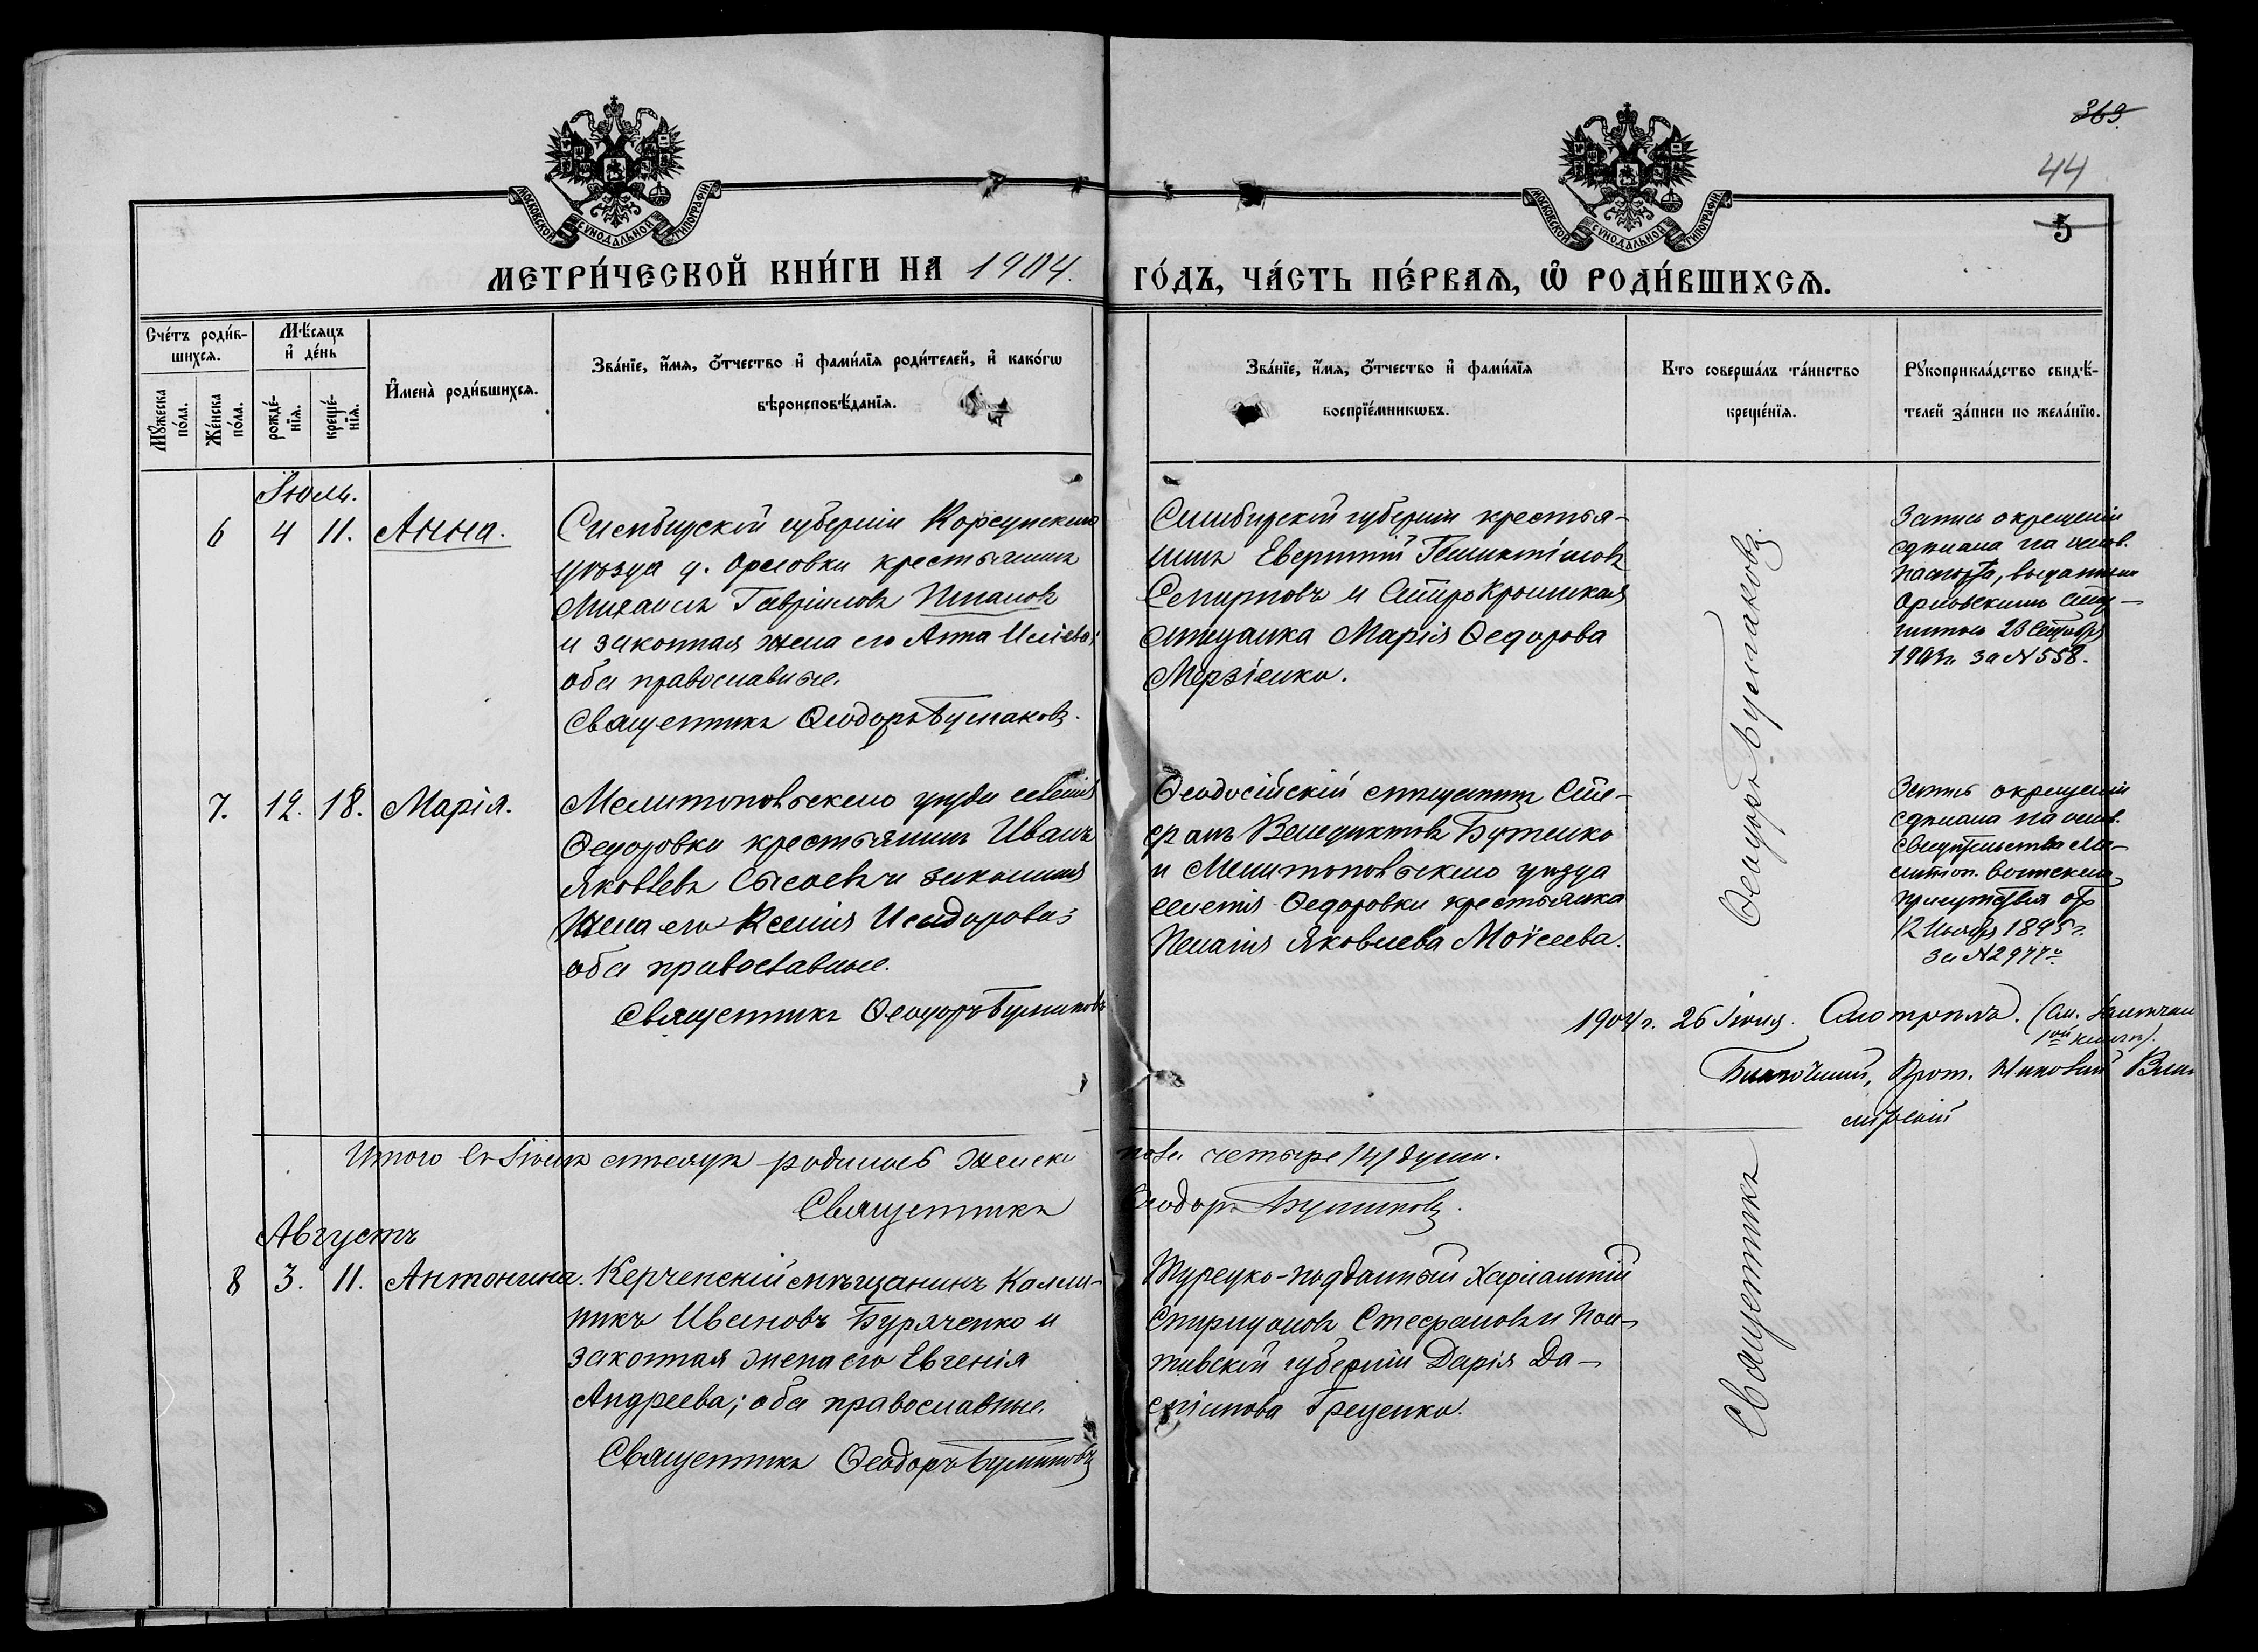 369.
44
5
МОСКОВСКОЙ СѴНОДАЛЬНОЙ ТИПОГРАФІИ
МОСКОВСКОЙ СѴНОДАЛЬНОЙ ТИПОГРАФІИ
МЕТРИ́ЧЕСКОЙ КНИ́ГИ НА 1904. ГО́ДЪ, ЧА́СТЬ ПЕ́РВАѦ, Ѽ РОДИ́ВШИХСѦ.
Сче́тъ роди́в-
шихсѧ.
Мѣ́сѧцъ
и҆ де́нь
Мꙋ́жеска
по́ла.
Же́нска
по́ла.
рожде́-
нїѧ.
креще́-
нїѧ.
И҆мена̀ роди́вшихсѧ.
Зва́нїе, и҆́мѧ, ѻ҆́тчество и҆ фами́лїѧ роди́телей, и҆ како́гѡ
вѣроисповѣ́данїѧ.
Зва́нїе, и҆́мѧ, ѻ҆́тчество и҆ фами́лїѧ
воспрїе́мникѡвъ.
Кто соверша́лъ та́инство
креще́нїѧ.
Рꙋкоприкла́дство свидѣ́-
телей за́писи по жела́нїю.
Іюль.
6 4 11. Анна.
Симбирской губерніи Корсунскаго
уѣзда д. Орловки крестьянинъ
Михаилъ Гавріиловъ
и законная жена его Анна Иліева;
оба православные.
Священникъ Ѳеодоръ Булгаковъ.
Симбирской губерніи крестья-
нинъ
и
мѣщанка Марія Ѳедорова
Запись о крещеніи
сдѣлана на основ.
паспорта, выданнаго
Орловскимъ
23
за № 558.
Ѳеодоръ Булгаковъ.
7. 12. 18. Марія.
Мелитопольскаго уѣзда селенія
Ѳедоровки крестьянинъ Иванъ
Яковлевъ Сысоевъ и законная
жена его Ксенія Исидорова;
оба православные.
Священникъ Ѳеодоръ Булгаковъ
Ѳеодосійскій мѣщанинъ Сте-
фанъ Венедиктовъ Бутенко
и Мелитопольскаго уѣзда
селенія Ѳедоровки крестьянка
Пелагія Яковлева Моѵсеева.
Запись о крещеніи
сдѣлана на основ.
свидѣтельства Ме-
литоп. воинскаго
присутствія отъ
12 Ноября 1895 г.
за № 2977
1904 г. 26 Іюля. Смотрѣлъ. (См.
1ой книги).
Благочинный, Прот.
Итого въ Іюлѣ мѣсяцѣ родилось женска пола четыре /4/ души.
Священникъ Ѳеодоръ Булгаковъ.
Августъ
8 3. 11. Антонина.
Керченскій мѣщанинъ Калли-
никъ Ивановъ Буряченко и
законная жена его Евгенія
Андреева; оба православные.
Священникъ Ѳеодоръ Булгаковъ
Турецко-подданный Харлампій
Спиридоновъ Стефановъ и Пол-
тавской губерніи Дарія Да-
Греценко.
Священникъ